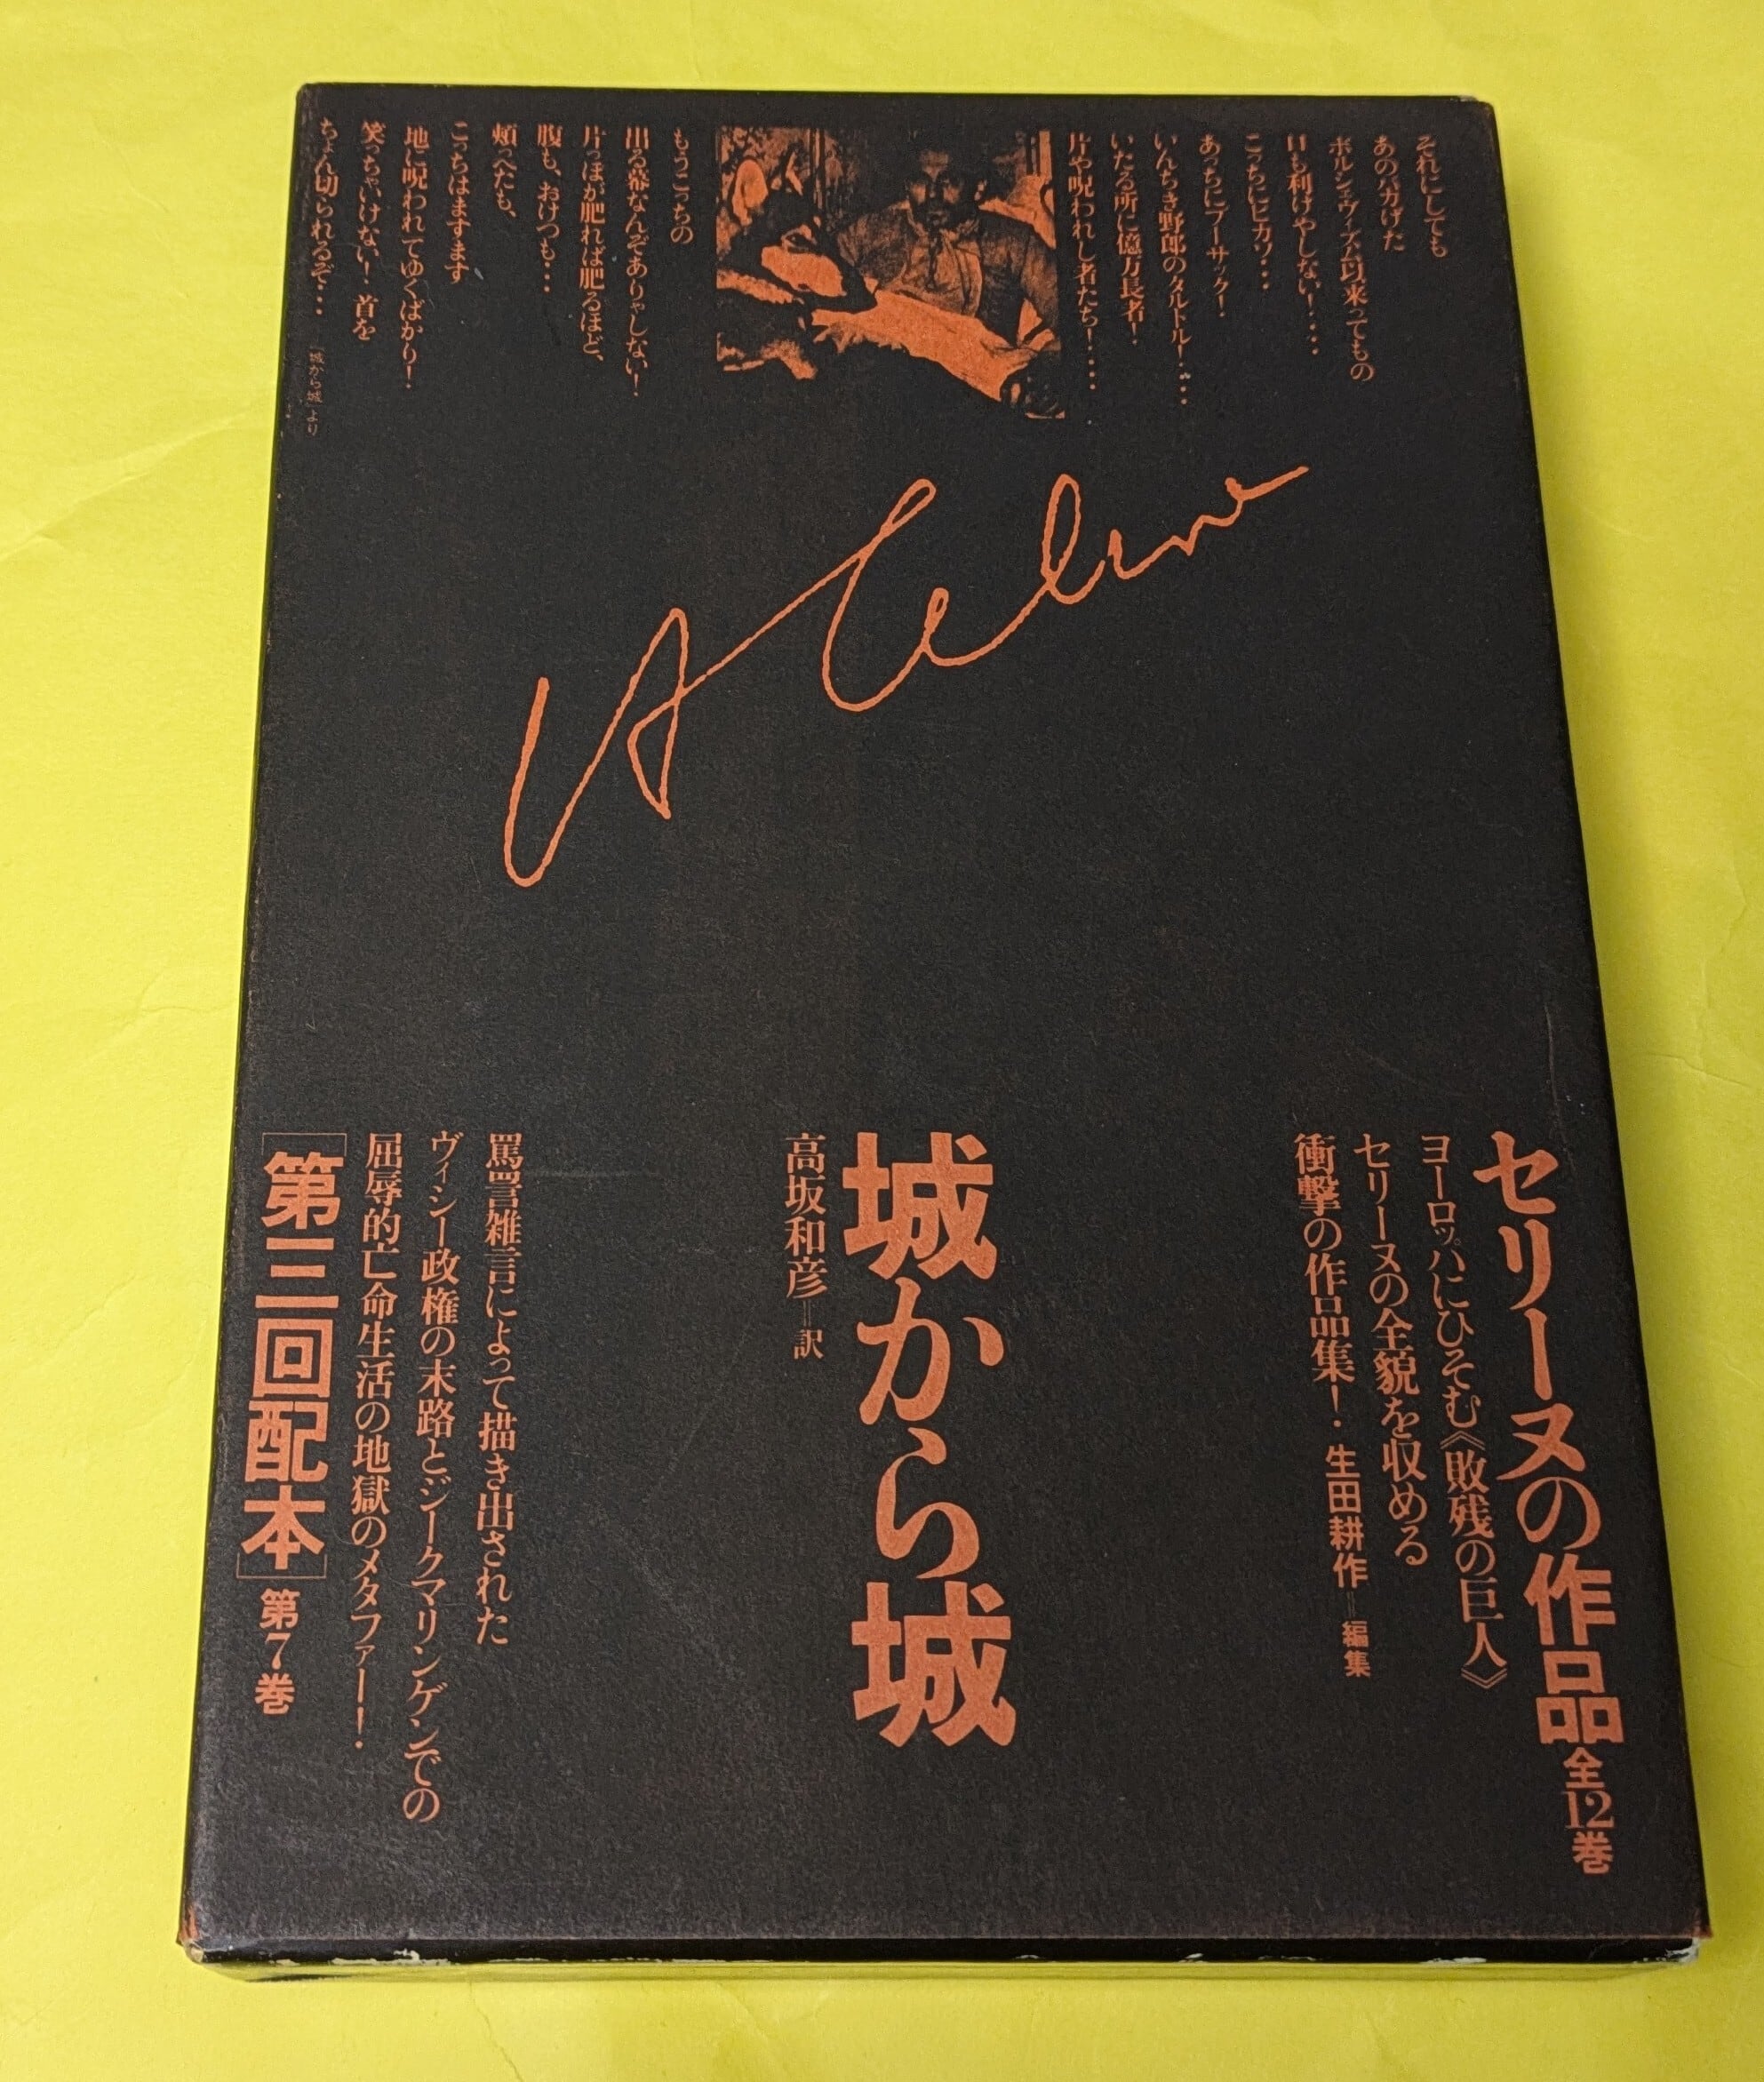 それにしても
あのバカげた
ボルシェヴィズム以来ってもの
口も利けやしない！…
こっちにピカソ…
あっちにブーサック！
いんちき野郎のタルトル！…
いたる所に億万長者！
片や呪われし者たち！……
もうこっちの
出る幕なんぞありゃしない！
片っぽが肥れば肥るほど、
腹も、おけつも…
頬ぺたも、
こっちはますます
地に呪われてゆくばかり！
笑っちゃいけない！ 首を
ちょん切られるぞ…
「城から城」より
セリーヌの作品 全12巻
ヨーロッパにひそむ《敗残の巨人》
セリーヌの全貌を収める
衝撃の作品集！ 生田耕作＝編集
城から城
高坂和彦＝訳
罵詈雑言によって描き出された
ヴィシー政権の末路とジークマリンゲンでの
屈辱的亡命生活の地獄のメタファー！
［第三回配本］ 第7巻